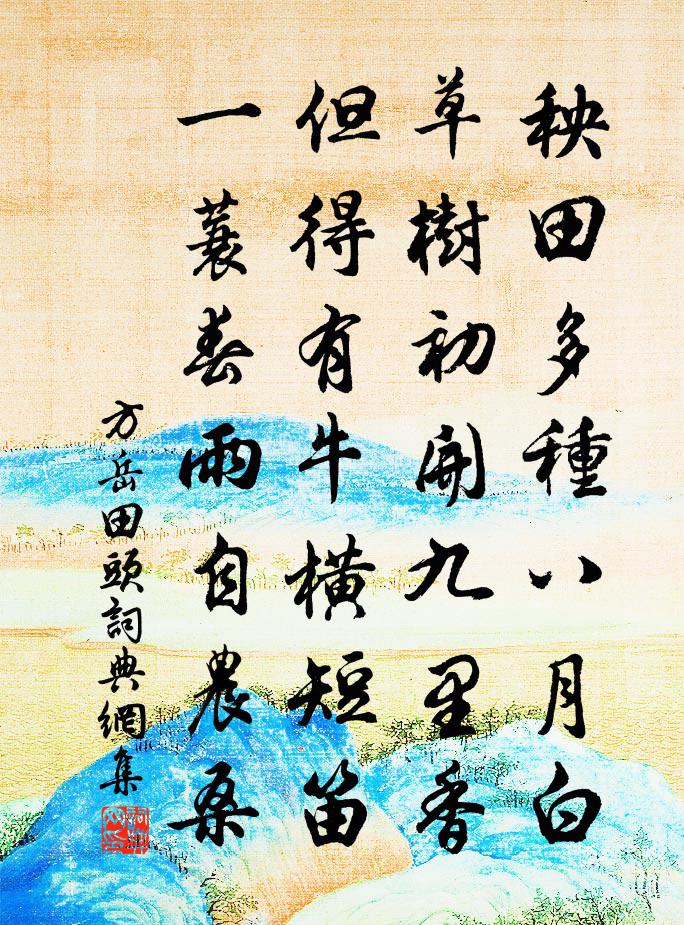 秧田多種八月白
草樹初開九里香
但得有牛橫短笛
一蓑春雨自農桑
方岳田頭詞典網集